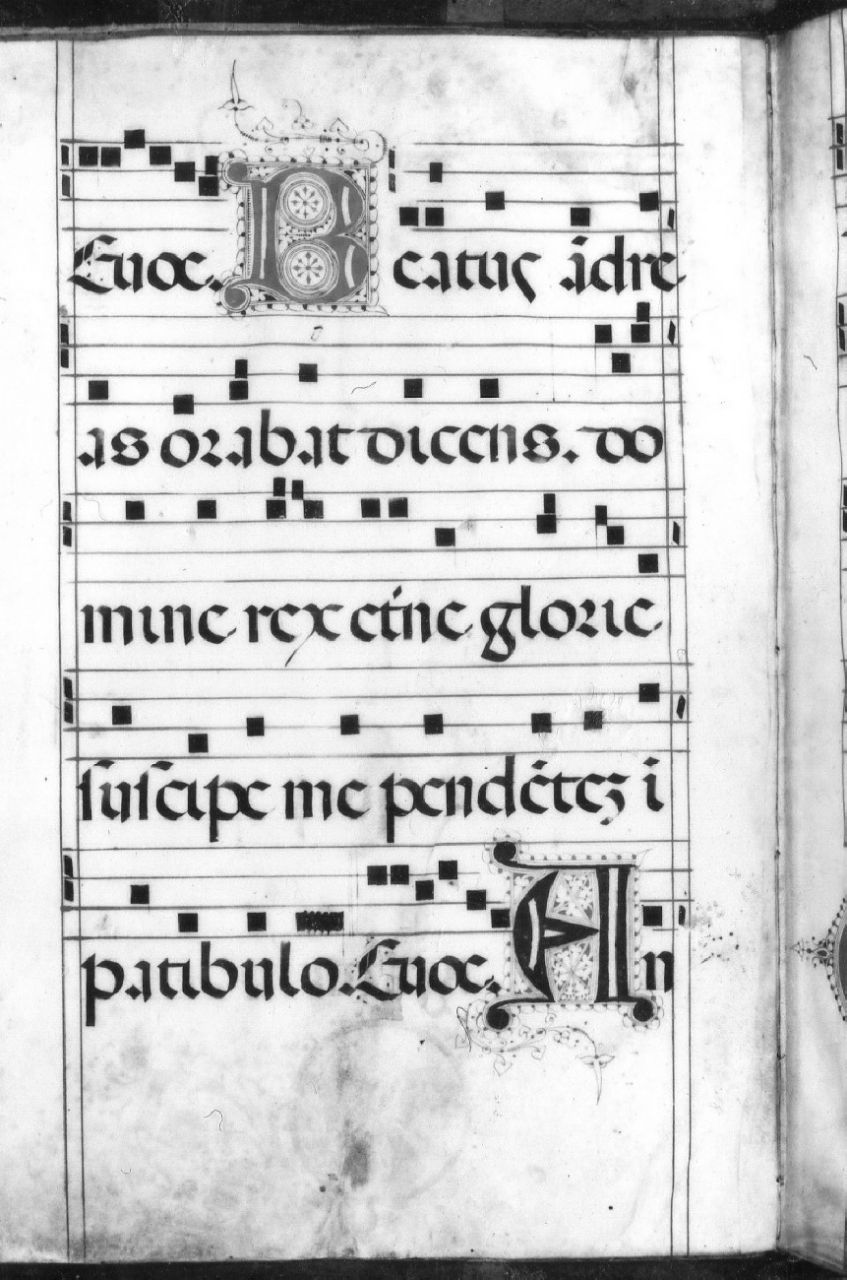 Euoe. Beatus ãdre
as orabat dicens. do
mine rex et́ne glorie
suscipe me pendẽteʒ ĩ
patibulo. Euoe. An